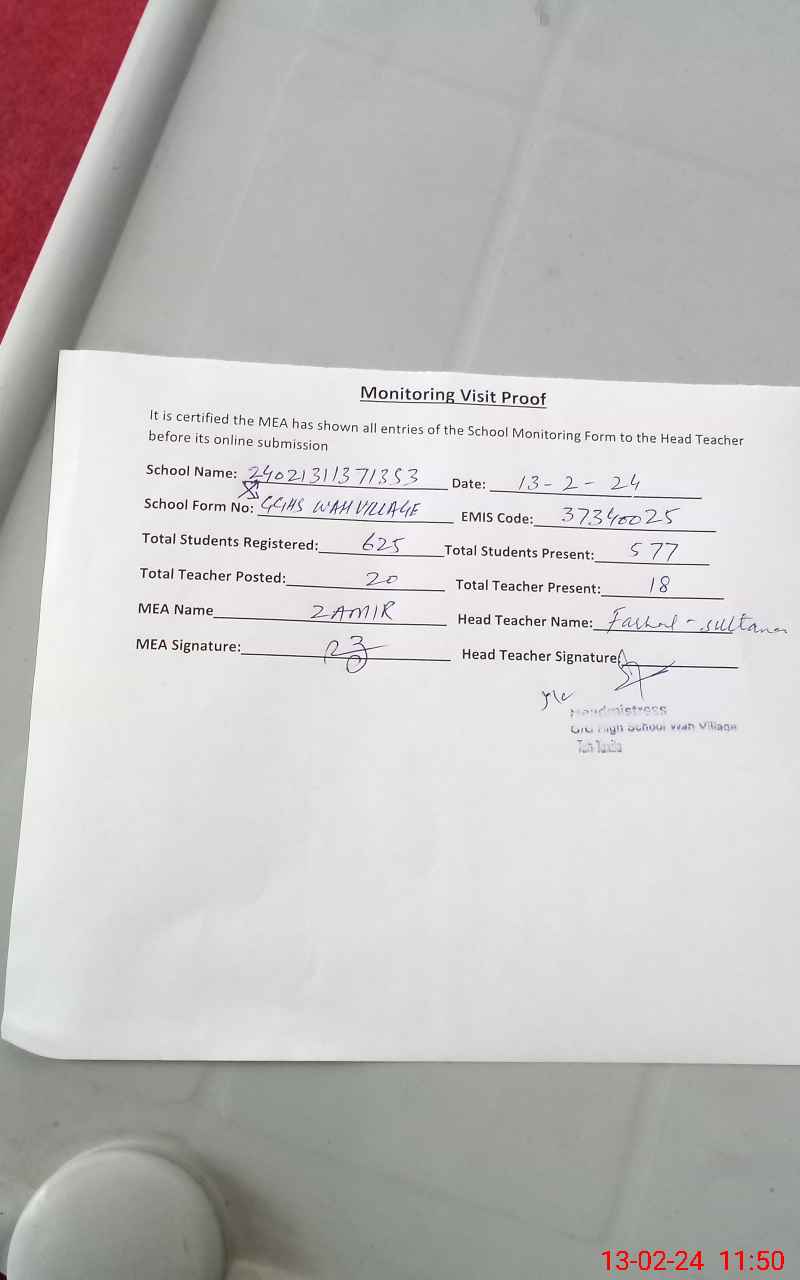 Monitoring Visit Proof
It is certified the MEA has shown all entries of the School Monitoring Form to the Head Teacher
before its online submission
School Name: 24021311371353 Date: 13-2-24
School Form No: GGHS WAH VILLAGE EMIS Code: 37340025
Total Students Registered: 625 Total Students Present: 577
Total Teacher Posted: 20 Total Teacher Present: 18
MEA Name ZAMIR Head Teacher Name: - Sultana
MEA Signature: Head Teacher Signature
Headmistress
High School Wah Village
Taxila
13-02-24 11:50